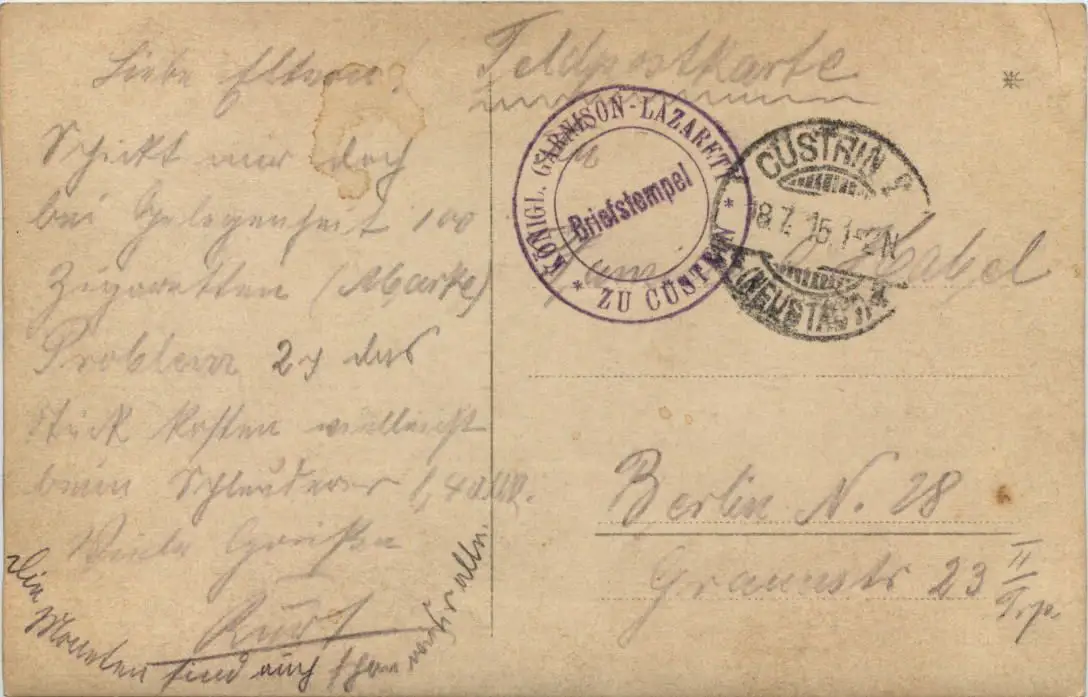 Liebe Eltern!
Schickt mir doch
bei Gelegenheit 100
Zigaretten (Marke)
Problem 2 ₰ das
Stück kosten vielleicht
beim Schleuderer 1,40 M.
Viele Grüßen
Kurt
Die Moneten sind auch schon wieder alle.
Feldpostkarte
KÖNIGL. GARNISON-LAZARETT
* ZU CÜSTRIN *
Briefstempel
CÜSTRIN 2
8.7.15.1-2N
(NEUSTADT)
An
Fam. Habel
Berlin N. 28
Graunstr 23 II
Trp.